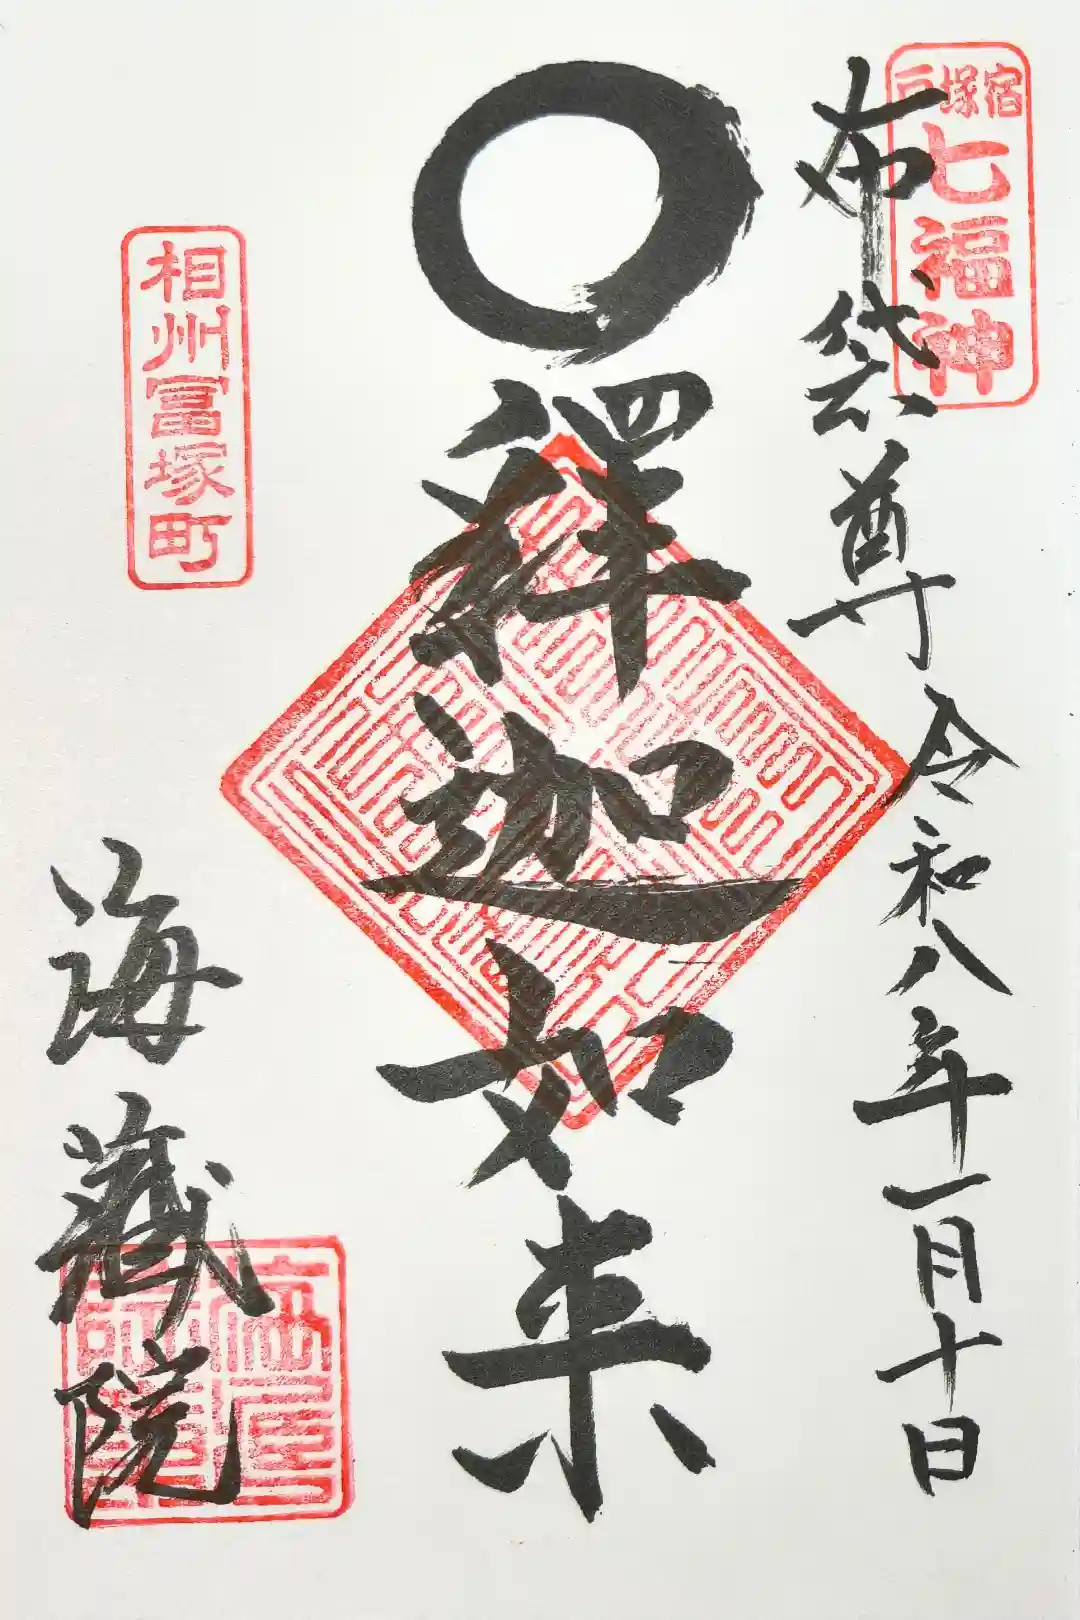 戸塚宿
七福神
布袋尊 令和八年一月十日
釋迦如来
相州冨塚町
海藏院